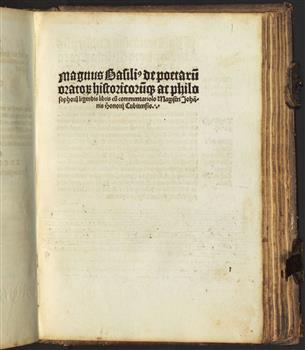 Magnus Basiliꝰ de poetarū
oratoꝝ historicorūqꝫ ac philo
sophorū legendis libris cū commentariolo Magistri Johā-
nis Honorij Cubitensis.